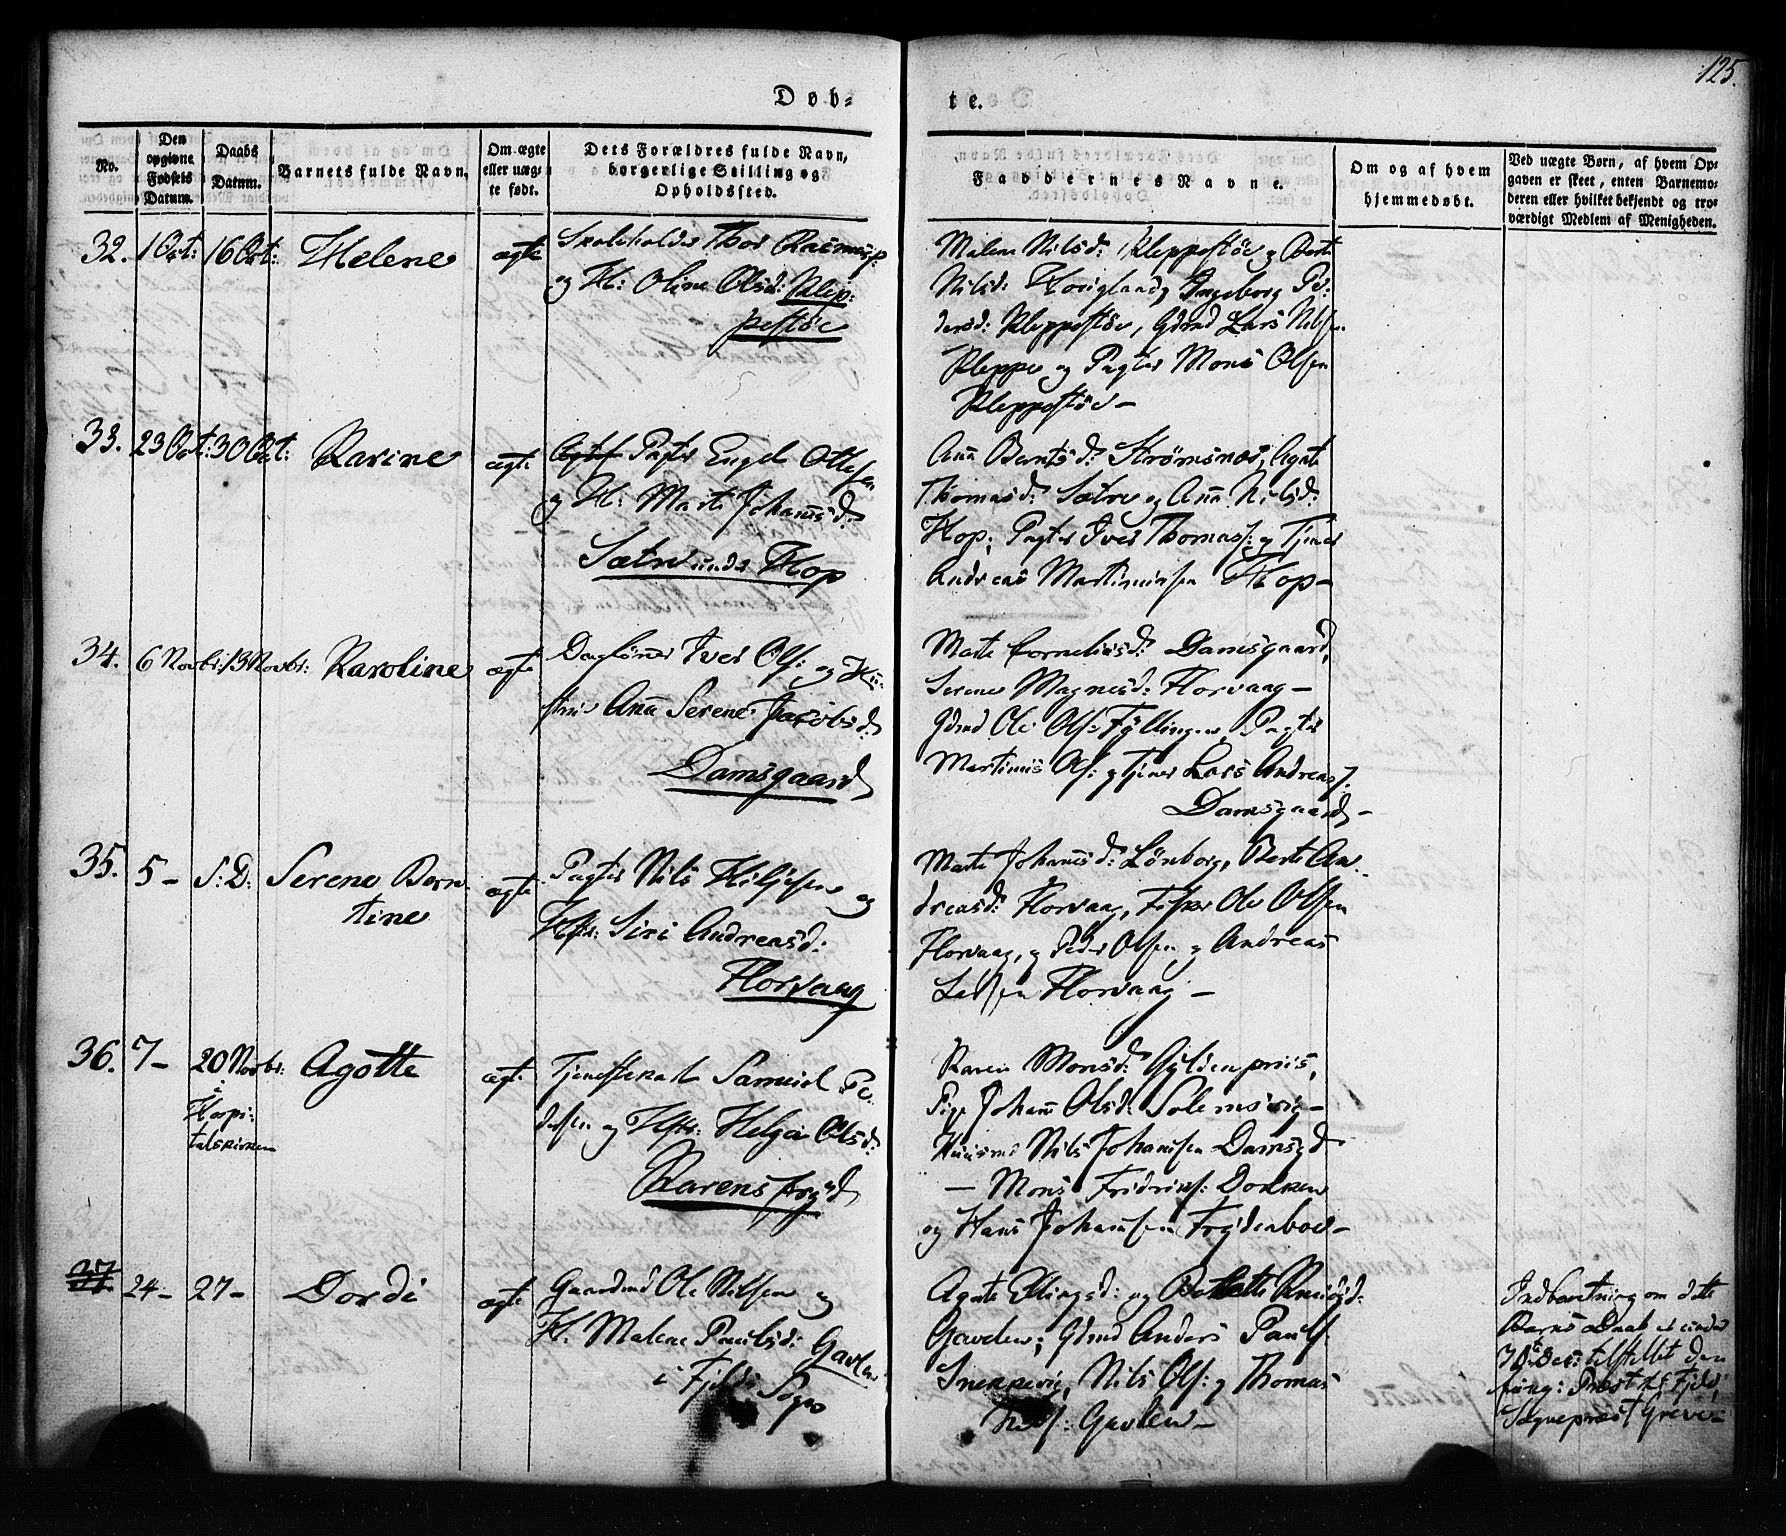 125.
Døb-
te.
No.
Den
opgivne
Fødsels
Datum.
Daabs
Datum.
Barnets fulde Navn.
Om ægte
eller uæg-
te født.
Dets Forældres fulde Navn,
borgerlige Stilling og
Opholdssted.
Faddernes Navne.
Om og af hvem
hjemmedøbt.
Ved uægte Børn, af hvem Op-
gaven er skeet, enten Barnemo-
deren eller hvilket bekjendt og tro-
værdigt Medlem af Menigheden.
32. 1 Oct: 16 Oct: Helene ægte
Skoleholder Thor Rasmuss:
og H: Oline Olsd: Klep-
pestöe
Malene Nilsd: Kleppestöe og Berte
Nilsd: Houglandg Ingeborg Pe-
dersd: Kleppestöe, Gdmd Lars Nilsen
Kleppe og Pagter Mons Olsen
Kleppestöe –
33. 23 Oct: 30 Oct: Karine ægte
Pagter Engel Ottesen
og H: Marte Johannsd:
Sætre under Hop
Anna Berntsd: Strømsnes, Agate
Thomasd: Sætre og Anna Nilsd:
Hop, Pagter Iver Thomass: og Tjener
Andreas Martinusen Hop –
34. 6 Novbr: 13 Novbr: Karoline ægte
Daglönner Iver Ols: og Hu-
strue Anna Serene Jacobsd:
Damsgaard
Marte Corneliusd: Damsgaard,
Serene Magnesd: Florvaag –
Gdmd Ole Ols: Fyllingen, Pagter
Martinus Ols: og tjener Lars Andreas:
Damsgaard –
35. 5 – S: D: Serene Bern-
tine
ægte
Pagter Nils Hiljesen og
Hstr: Siri Andreasd:
Florvaag
Marte Johannsd: Lönborg, Berte An-
dreasd: Florvaag, Fisker Ole Olsen
Florvaag, og Peder Olsen og Andreas
Larsen Florvaag –
36. 7 – 20 Novbr: Agotte ægte
i
Hospi-
talskirken
Tjenestekarl Samuel Pe-
dersen og Hstr: Helga Olsd:
Karensfryd
Karen Monsd: Gyldenpriis,
Pige Johanna Olsd: Solemsvig –
Huusmd Nils Johannsen Damsgd
– Mons Fridriks: Dokken
og Hans Johannsen Frydenboe –
37 24 – 27 – Dordi ægte
Gaardmd Ole Nilsen og
H. Malene Paulsd: Gavlen
i Fjelds Sogn
Agate Ellingsd: og Bolette
Gavlen, Gdmd Anders Pauls:
Snekkevig, Nils Ols: og Thomas
Gavlen –
Indberetning om dette
Barns Daab er under
30 Dec: tilstellet den
fung: Præst til Fjeld,
Sognepræst Greve –